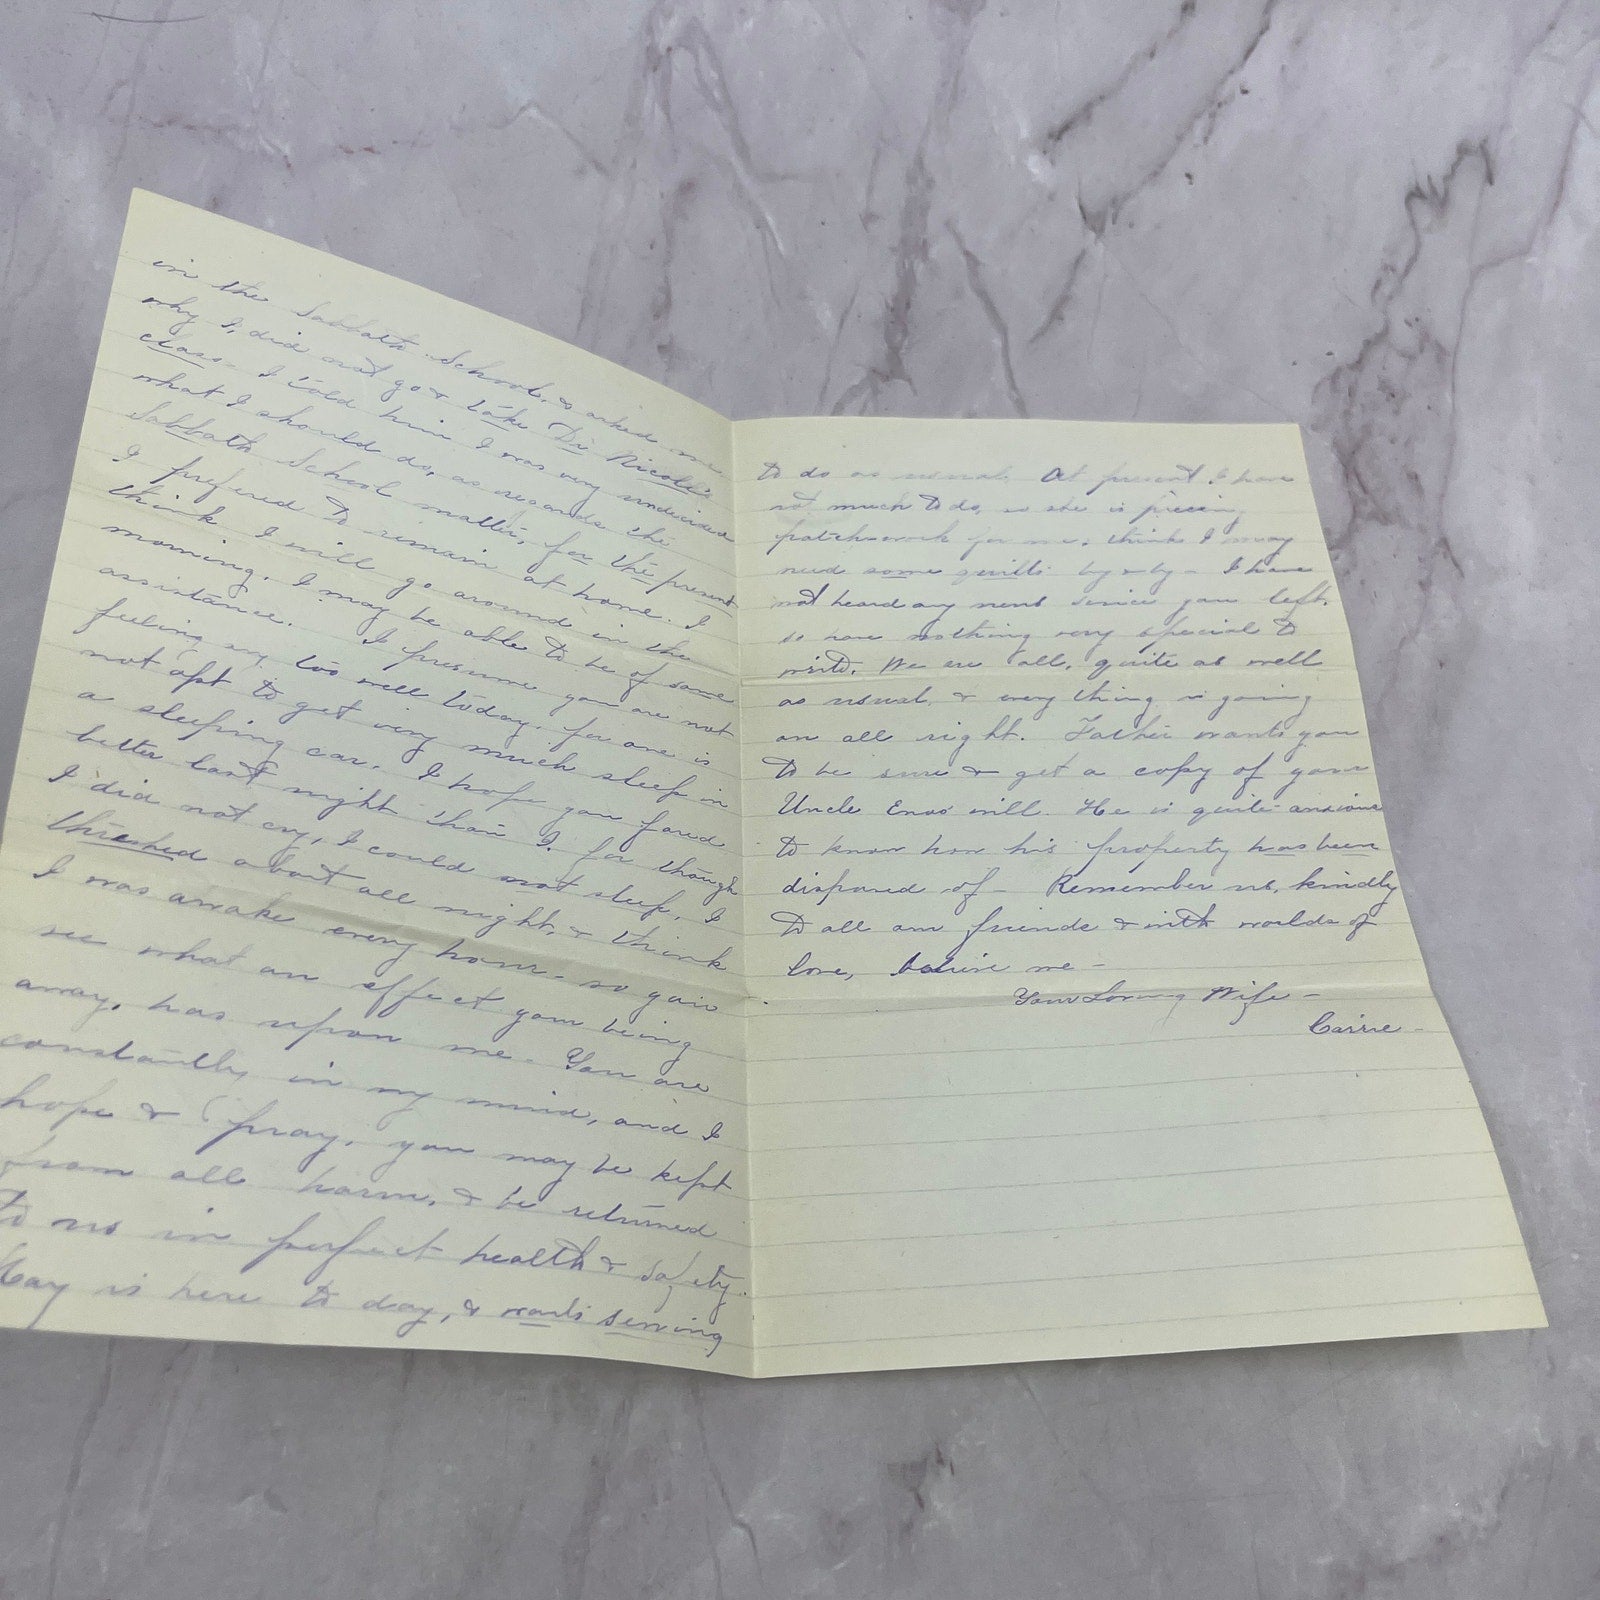 in the Sabbath School, & asked me
why I did not go & take Dr Nicoll's
class. I told him I was very undecided
what I should do, as regards the
Sabbath School matter, for the present
I prefered to remain at home. I
think I will go around in the
morning. I may be able to be of some
assistance. I presume you are not
feeling too well today, for one is
not apt to get very much sleep in
a sleeping car. I hope you fared
better last night than I. for though
I did not cry, I could not sleep, I
thrashed about all night, & think
I was awake every hour - so you
see what an effect your being
away, has upon me - You are
constantly in my mind, and I
hope & pray, you may be kept
from all harm, & be returned
to us in perfect health & safety.
May is here to day, & wants sewing
to do as usual. At present I have
not much to do, so she is piecing
patchwork for me, think I may
need some quilts by & by - I have
not heard any news since you left.
so have nothing very special to
write. We are all, quite as well
as usual, & every thing is going
on all right. Father wants you
to be sure & get a copy of your
Uncle Enos will. He is quite anxious
to know how his property has been
disposed of - Remember us, kindly
to all our friends & with worlds of
love, believe me -
Your Loving Wife -
Carrie -